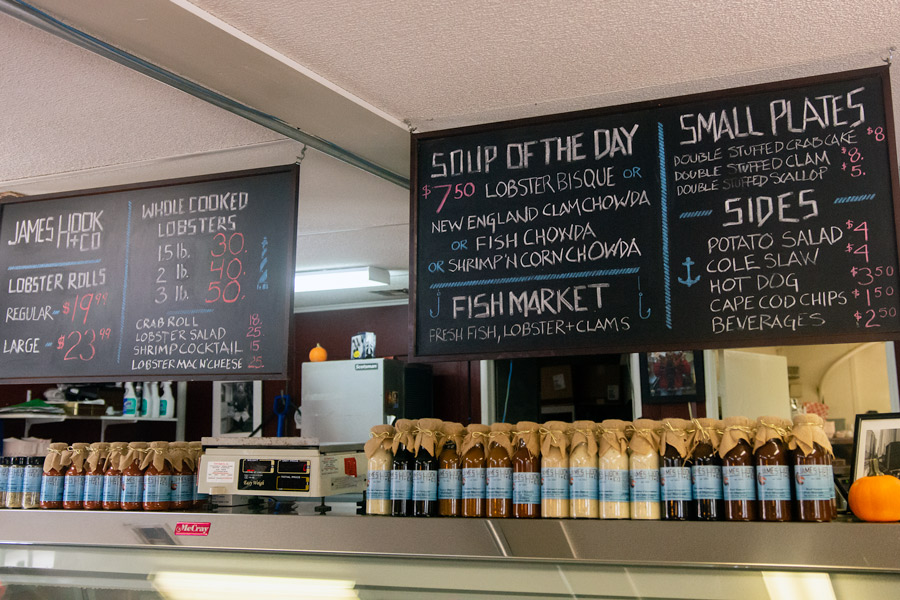 JAMES HOOK
+CO
LOBSTER ROLLS
REGULAR - $19.99
LARGE - $23.99
WHOLE COOKED
LOBSTERS
1.5 lb. 30.
2 lb. 40.
3 lb. 50.
CRAB ROLL 18.
LOBSTER SALAD 25
SHRIMP COCKTAIL 15
LOBSTER MAC'N'CHEESE 25
SOUP OF THE DAY
$7.50 LOBSTER BISQUE OR
NEW ENGLAND CLAM CHOWDA
OR FISH CHOWDA
OR SHRIMP 'N CORN CHOWDA
FISH MARKET
FRESH FISH, LOBSTER + CLAMS
SMALL PLATES
DOUBLE STUFFED CRAB CAKE $8
DOUBLE STUFFED CLAM $8.
DOUBLE STUFFED SCALLOP $5.
SIDES
POTATO SALAD $4
COLE SLAW $4
HOT DOG $3.50
CAPE COD CHIPS $1.50
BEVERAGES $2.50
McCray